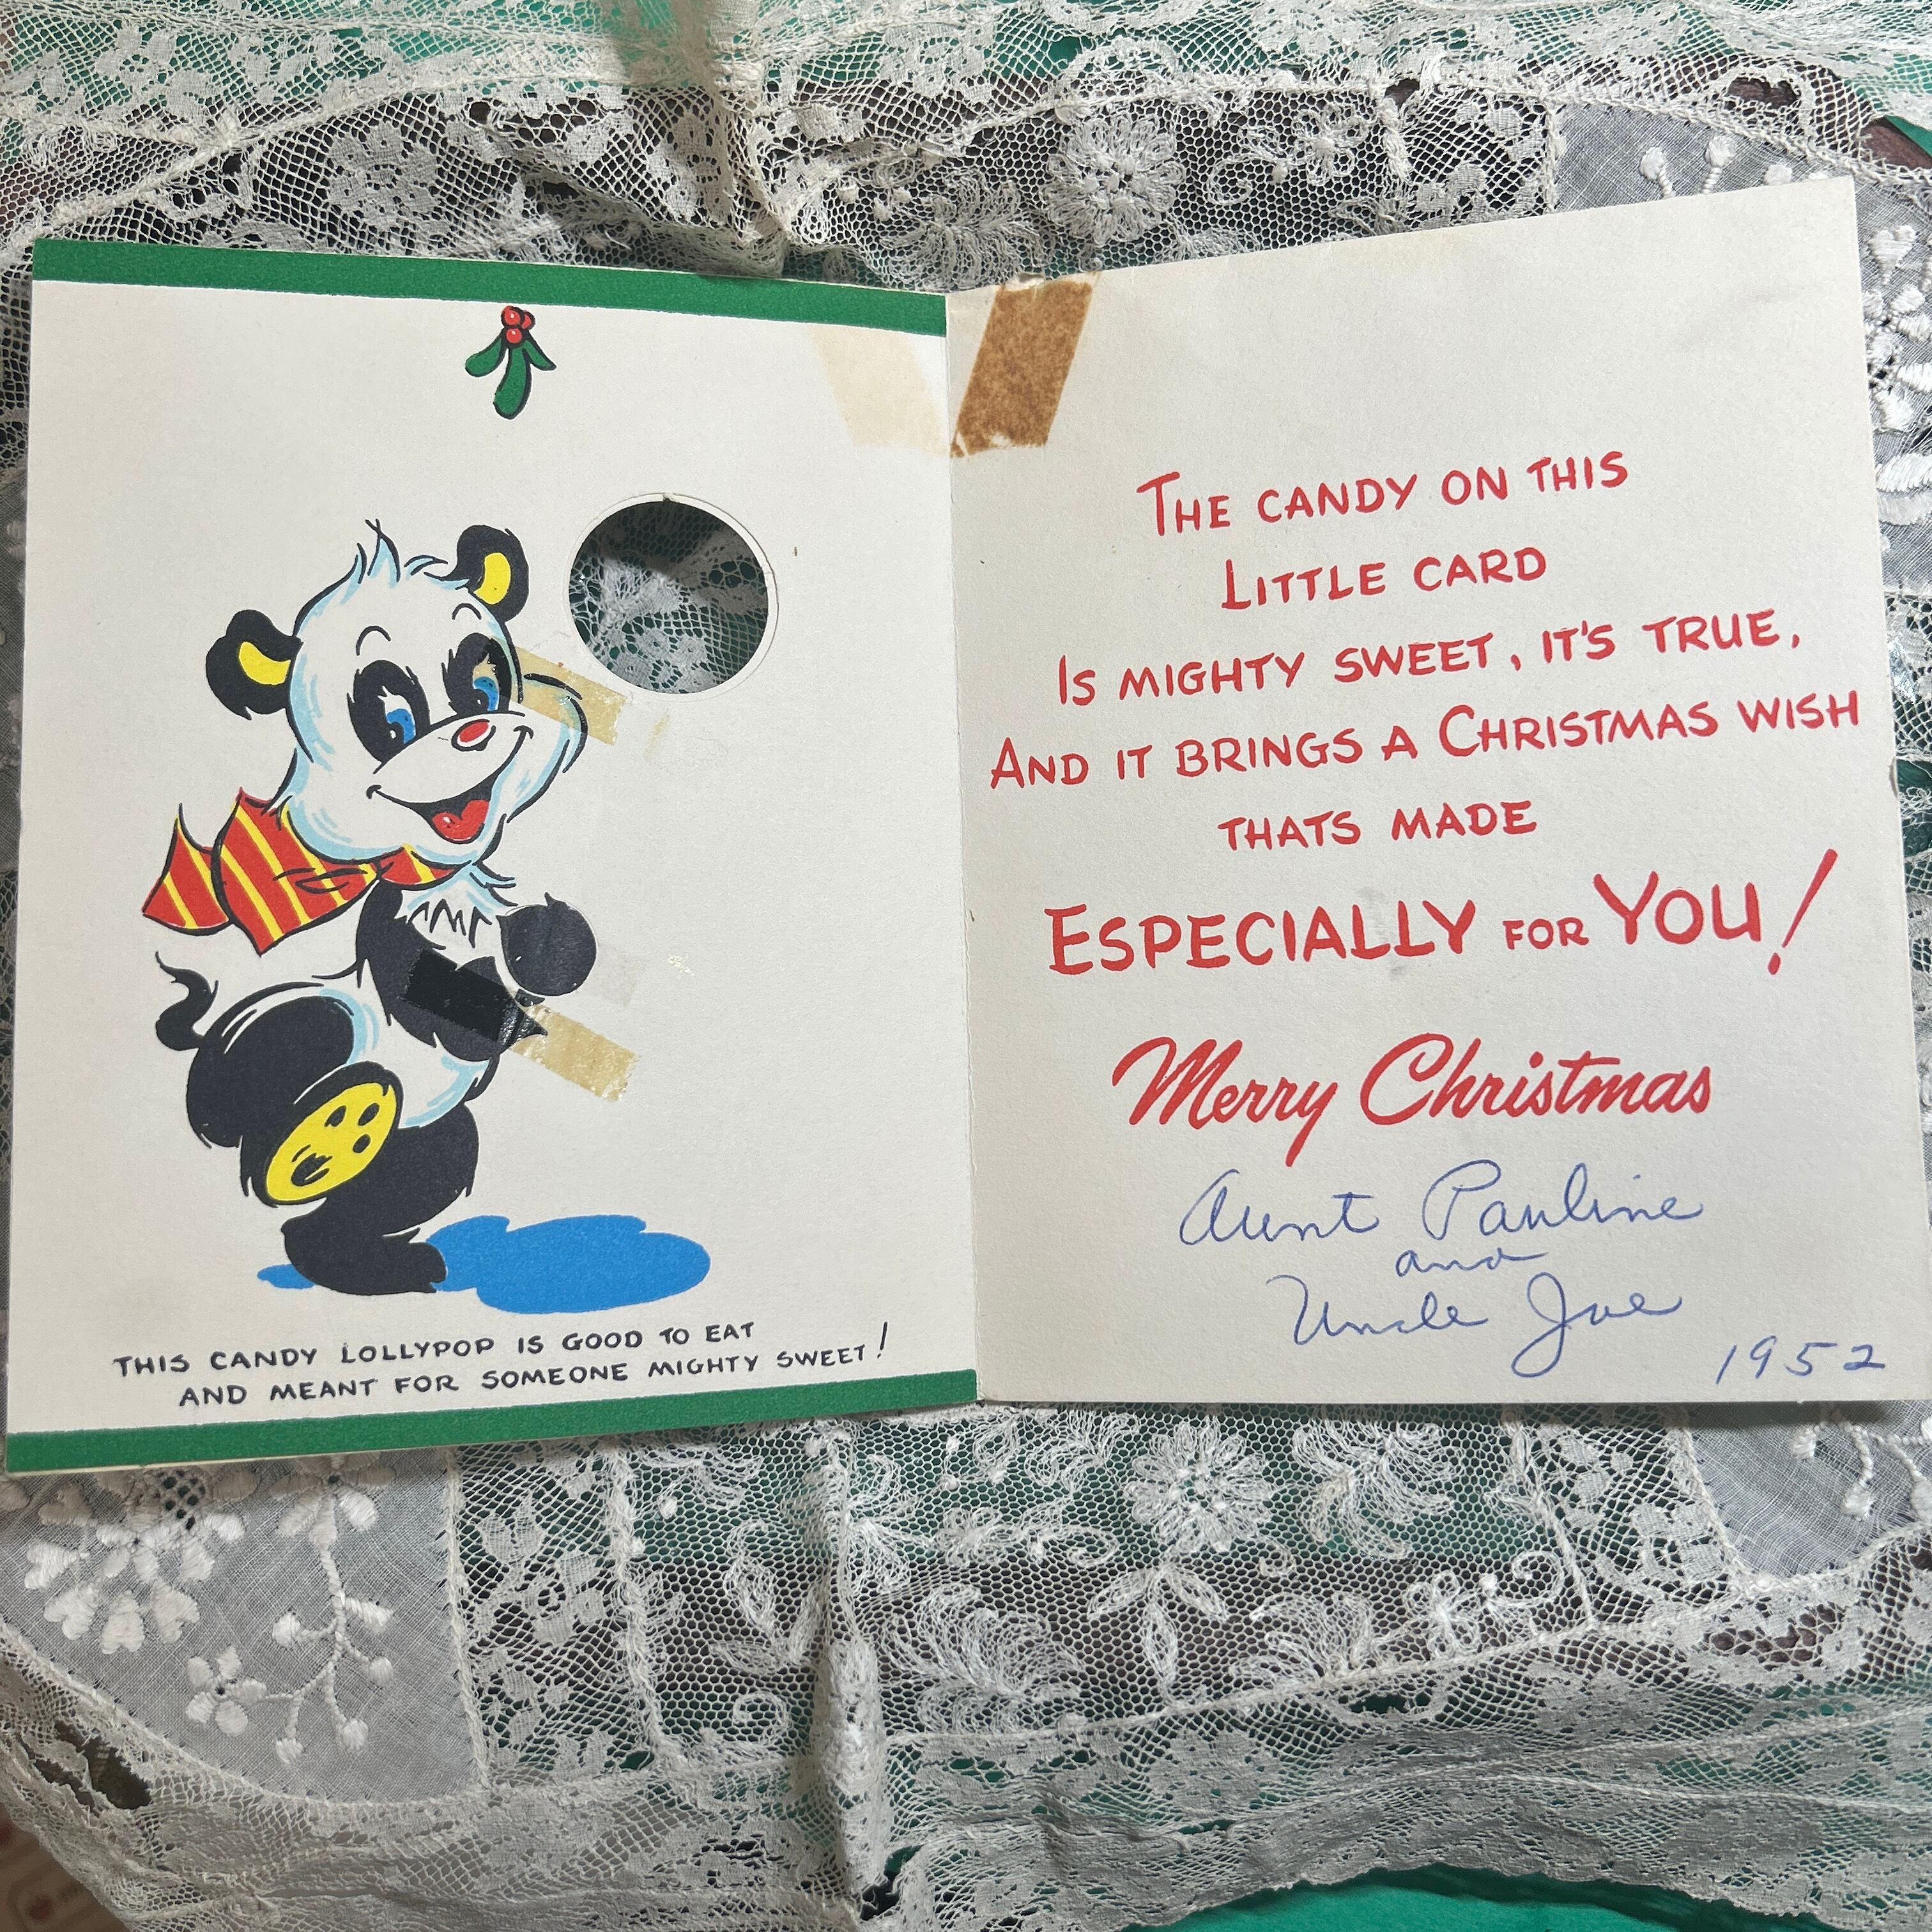 THIS CANDY LOLLYPOP IS GOOD TO EAT
AND MEANT FOR SOMEONE MIGHTY SWEET!
THE CANDY ON THIS
LITTLE CARD
IS MIGHTY SWEET, IT'S TRUE,
AND IT BRINGS A CHRISTMAS WISH
THATS MADE
ESPECIALLY FOR YOU!
Merry Christmas
Aunt Pauline
and
Uncle Joe
1952